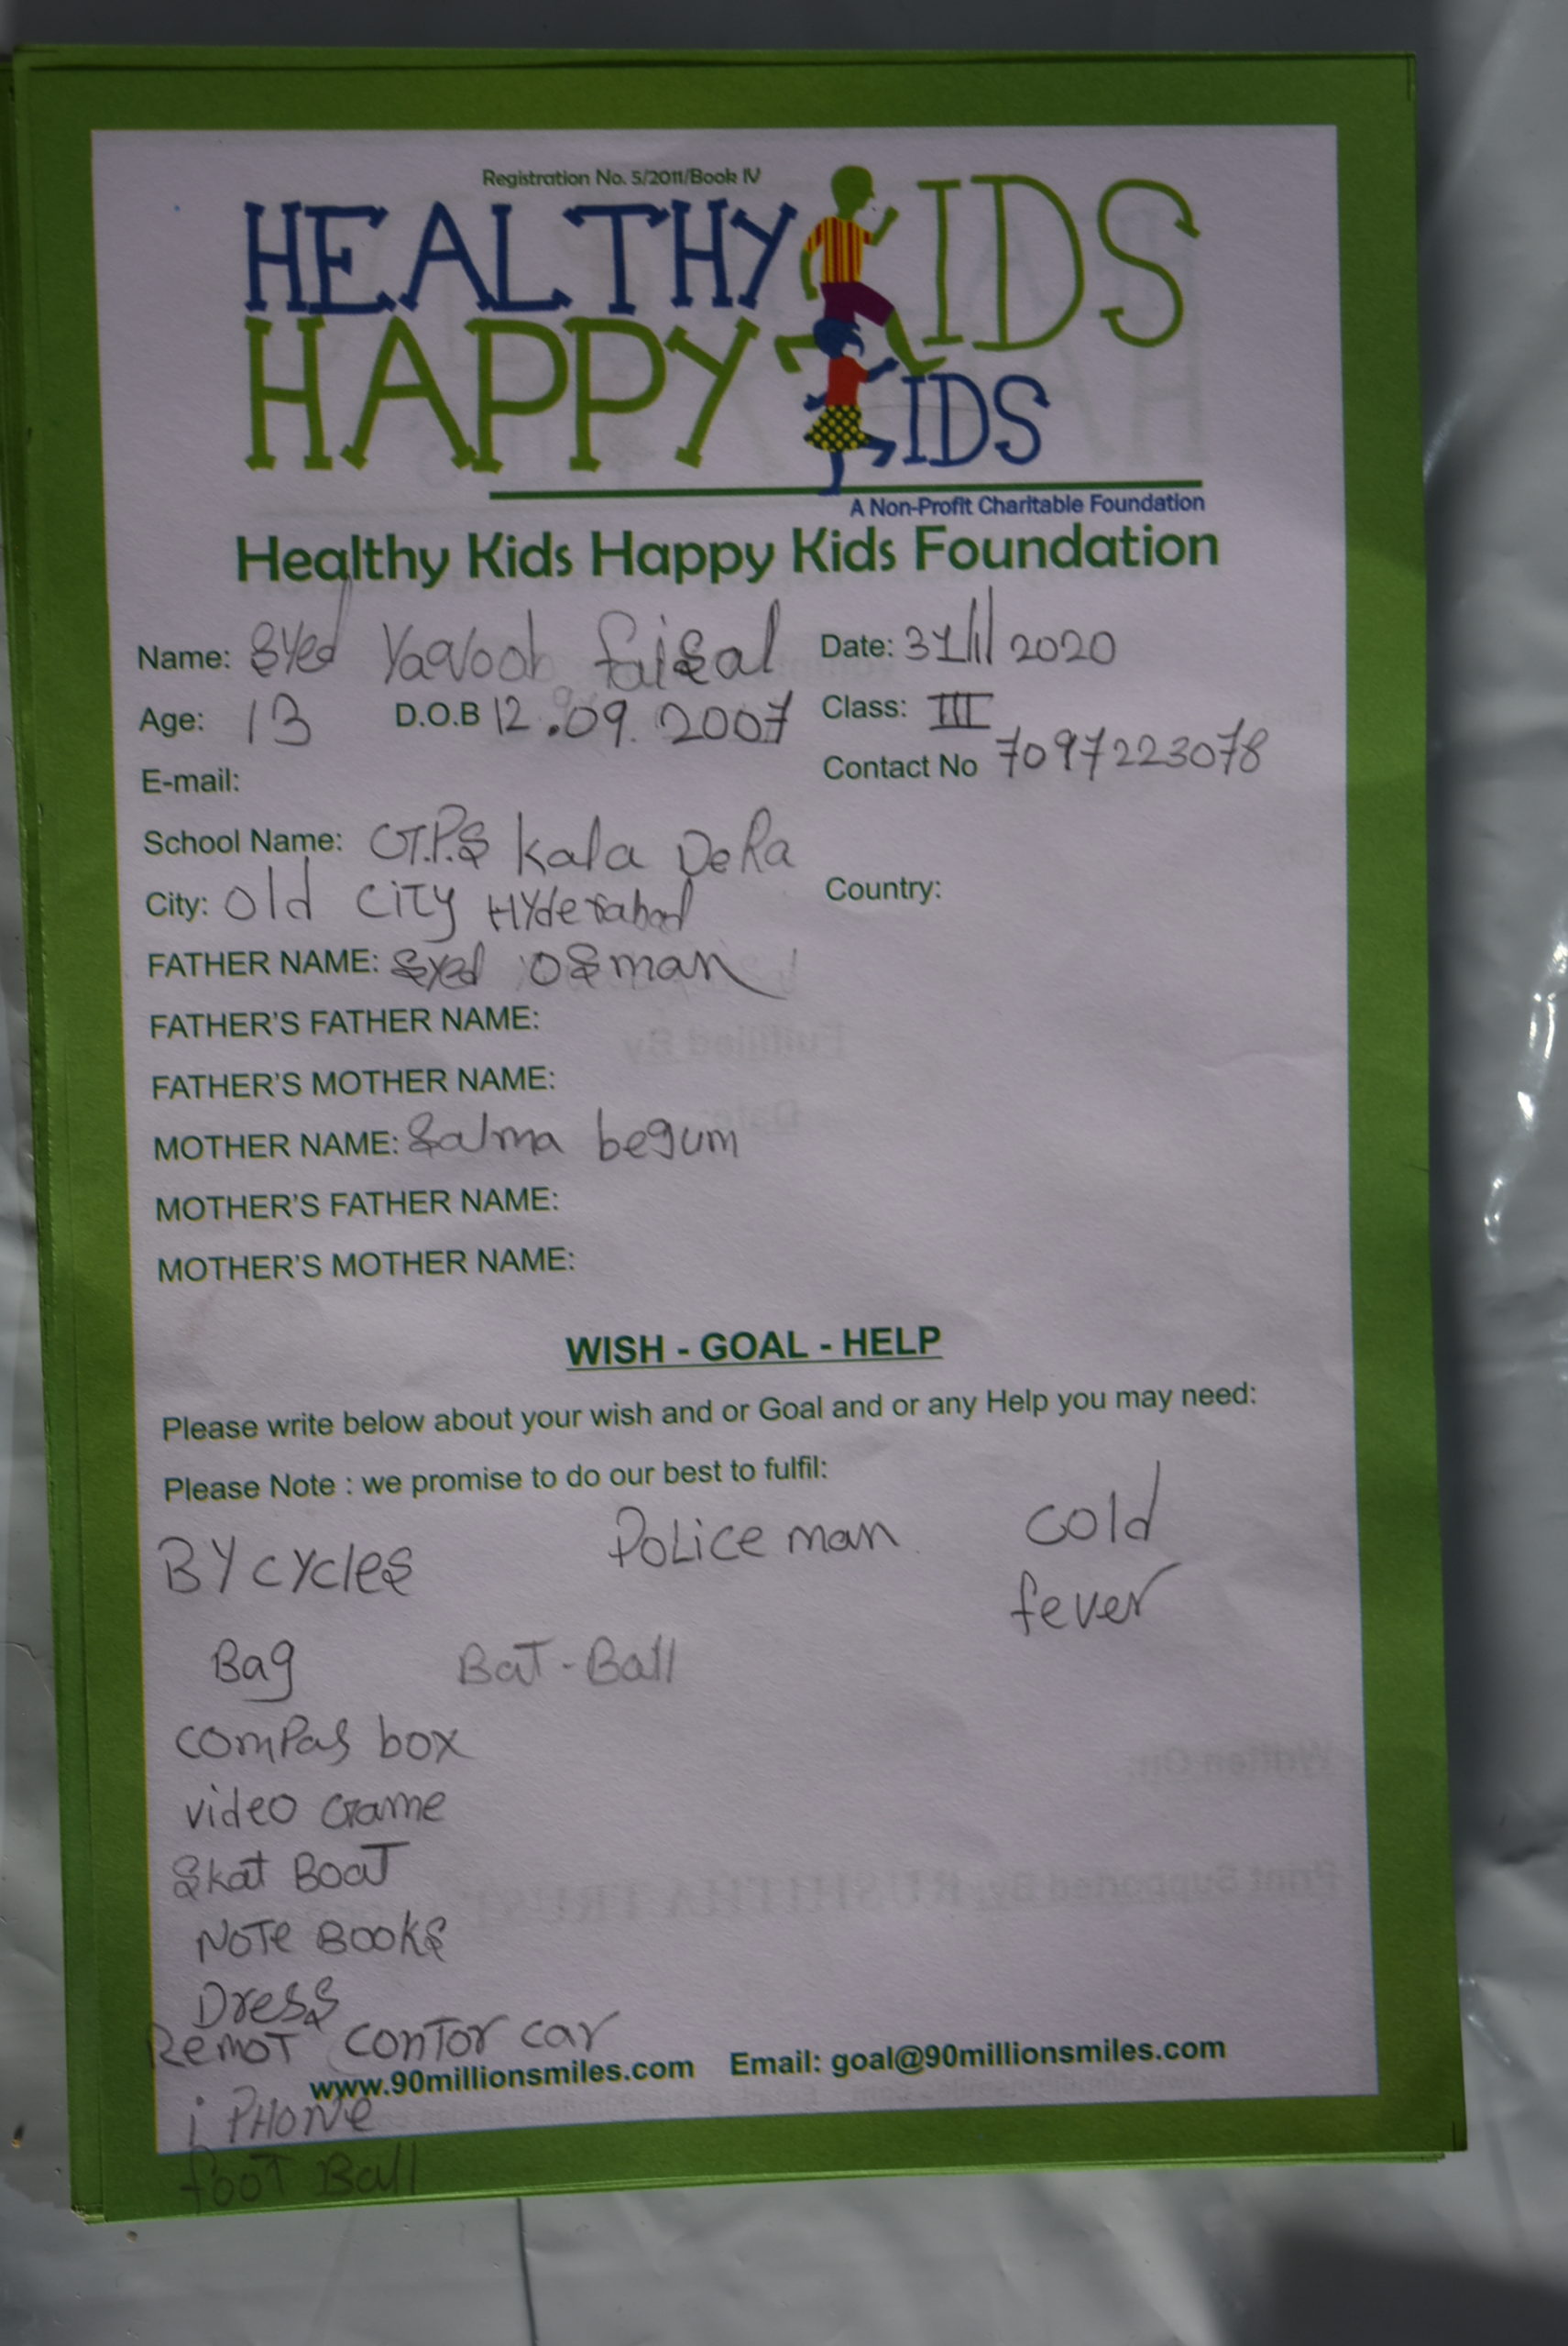 Registration No. 5/2011/Book IV
HEALTHY KIDS
HAPPY KIDS
A Non-Profit Charitable Foundation
Healthy Kids Happy Kids Foundation
Name: Syed Yaqoob faisal Date: 31/1/2020
Age: 13 D.O.B 12.09.2007 Class: III
E-mail: Contact No 7097223078
School Name: G.P.S Kala DeRa
City: Old City Hyderabad Country:
FATHER NAME: Syed Osman
FATHER'S FATHER NAME:
FATHER'S MOTHER NAME:
MOTHER NAME: Salma begum
MOTHER'S FATHER NAME:
MOTHER'S MOTHER NAME:
WISH - GOAL - HELP
Please write below about your wish and or Goal and or any Help you may need:
Please Note : we promise to do our best to fulfil:
BY cycles Police man cold
fever
Bag Bat-Ball
comPas box
video Game
Skat BoaT
NoTe Books
Dress
RemoT conTor car
www.90millionsmiles.com Email: goal@90millionsmiles.com
i PHONe
fooT Ball